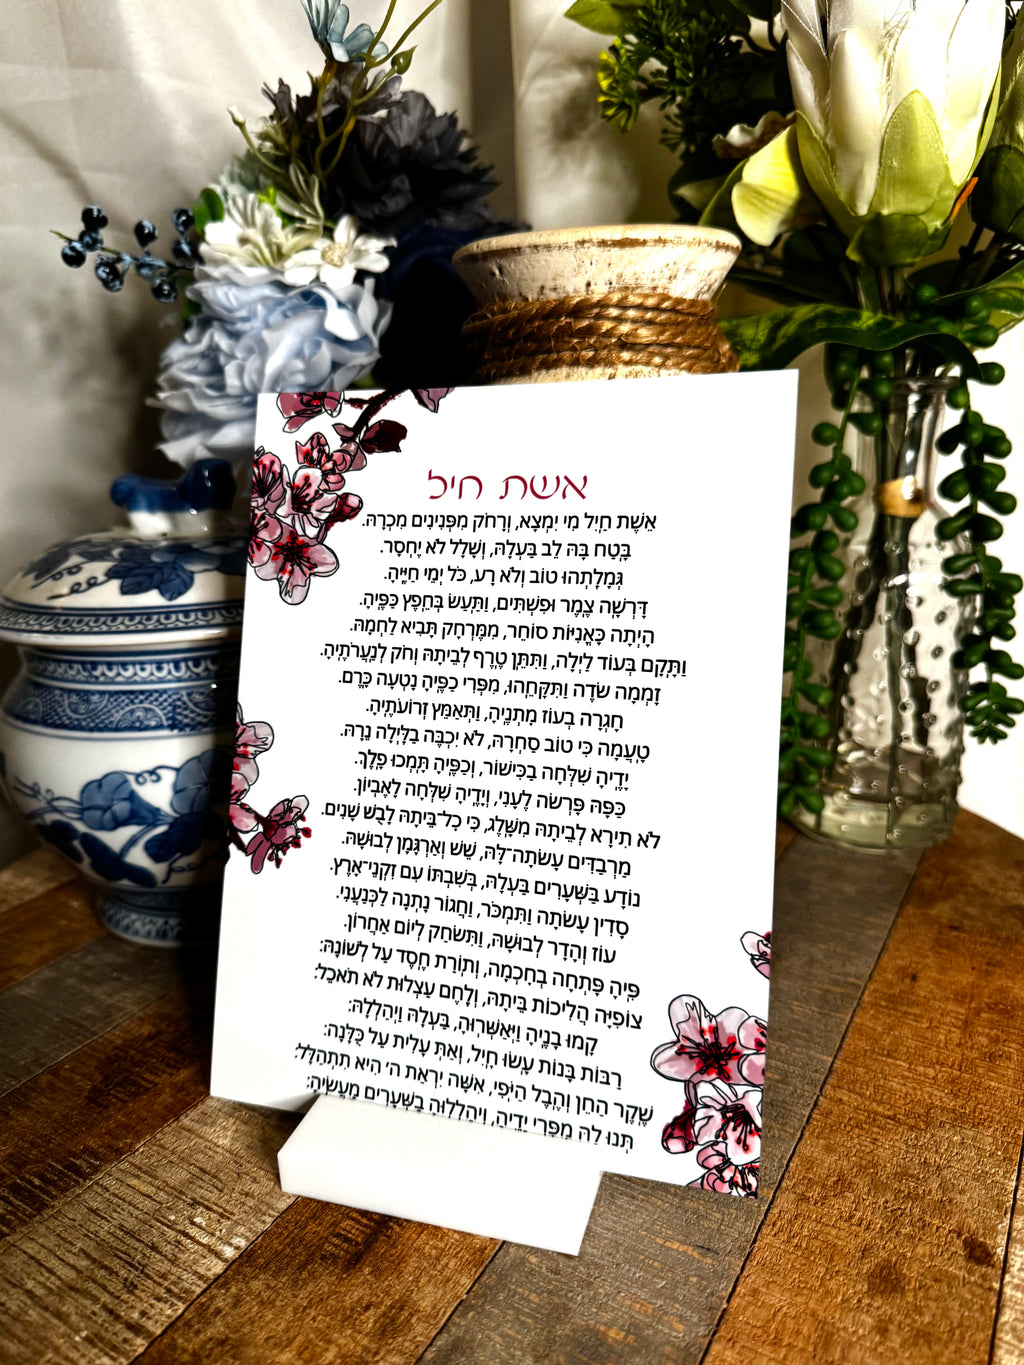 אשת חיל
אֵשֶׁת חַיִל מִי יִמְצָא, וְרָחֹק מִפְּנִינִים מִכְרָהּ.
בָּטַח בָּהּ לֵב בַּעְלָהּ, וְשָׁלָל לֹא יֶחְסָר.
גְּמָלַתְהוּ טוֹב וְלֹא רָע, כֹּל יְמֵי חַיֶּיהָ.
דָּרְשָׁה צֶמֶר וּפִשְׁתִּים, וַתַּעַשׂ בְּחֵפֶץ כַּפֶּיהָ.
הָיְתָה כָּאֳנִיּוֹת סוֹחֵר, מִמֶּרְחָק תָּבִיא לַחְמָהּ.
וַתָּקָם בְּעוֹד לַיְלָה, וַתִּתֵּן טֶרֶף לְבֵיתָהּ וְחֹק לְנַעֲרֹתֶיהָ.
זָמְמָה שָׂדֶה וַתִּקָּחֵהוּ, מִפְּרִי כַפֶּיהָ נָטְעָה כָּרֶם.
חָגְרָה בְעוֹז מָתְנֶיהָ, וַתְּאַמֵּץ זְרוֹעֹתֶיהָ.
טָעֲמָה כִּי טוֹב סַחְרָהּ, לֹא יִכְבֶּה בַלַּיְלָה נֵרָהּ.
יָדֶיהָ שִׁלְּחָה בַכִּישׁוֹר, וְכַפֶּיהָ תָּמְכוּ פָלֶךְ.
כַּפָּהּ פָּרְשָׂה לֶעָנִי, וְיָדֶיהָ שִׁלְּחָה לָאֶבְיוֹן.
לֹא תִירָא לְבֵיתָהּ מִשָּׁלֶג, כִּי כָל־בֵּיתָהּ לָבֻשׁ שָׁנִים.
מַרְבַדִּים עָשְׂתָה־לָּהּ, שֵׁשׁ וְאַרְגָּמָן לְבוּשָׁהּ.
נוֹדָע בַּשְּׁעָרִים בַּעְלָהּ, בְּשִׁבְתּוֹ עִם זִקְנֵי־אָרֶץ.
סָדִין עָשְׂתָה וַתִּמְכֹּר, וַחֲגוֹר נָתְנָה לַכְּנַעֲנִי.
עוֹז וְהָדָר לְבוּשָׁהּ, וַתִּשְׂחַק לְיוֹם אַחֲרוֹן.
פִּיהָ פָּתְחָה בְחָכְמָה, וְתוֹרַת חֶסֶד עַל לְשׁוֹנָהּ:
צוֹפִיָּה הֲלִיכוֹת בֵּיתָהּ, וְלֶחֶם עַצְלוּת לֹא תֹאכֵל:
קָמוּ בָנֶיהָ וַיְאַשְּׁרוּהָ, בַּעְלָהּ וַיְהַלְלָהּ:
רַבּוֹת בָּנוֹת עָשׂוּ חָיִל, וְאַתְּ עָלִית עַל כֻּלָּנָה:
שֶׁקֶר הַחֵן וְהֶבֶל הַיֹּפִי, אִשָּׁה יִרְאַת ה' הִיא תִתְהַלָּל:
תְּנוּ לָהּ מִפְּרִי יָדֶיהָ, וִיהַלְלוּהָ בַשְּׁעָרִים מַעֲשֶׂיהָ: